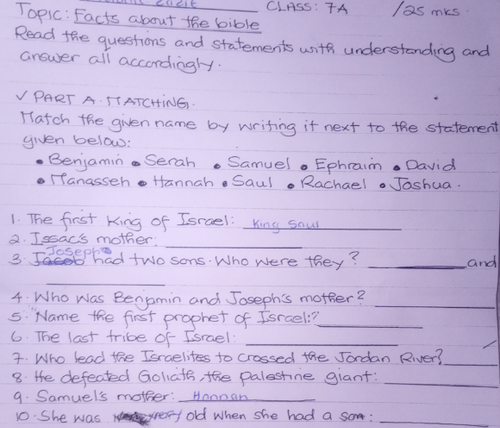 CLASS: 7A /25 mks.
TOPIC: Facts about the bible
Read the questions and statements with understanding and
answer all accordingly.
✓ PART A. MATCHING.
Match the given name by writing it next to the statement
given below:
• Benjamin • Serah • Samuel • Ephraim • David
• Manasseh • Hannah • Saul • Rachael • Joshua.
1. The first King of Israel: King Saul
2. Issac's mother:
Joseph
3. Jacob had two sons. Who were they? and
4. Who was Benjmin and Joseph's mother?
5. Name the first prophet of Israel:?
6. The last tribe of Israel:
7. Who lead the Israelites to crossed the Jordan River?
8. He defeated Goliath, the palestine giant:
9. Samuel's mother: Hannah
10. She was very old when she had a son: